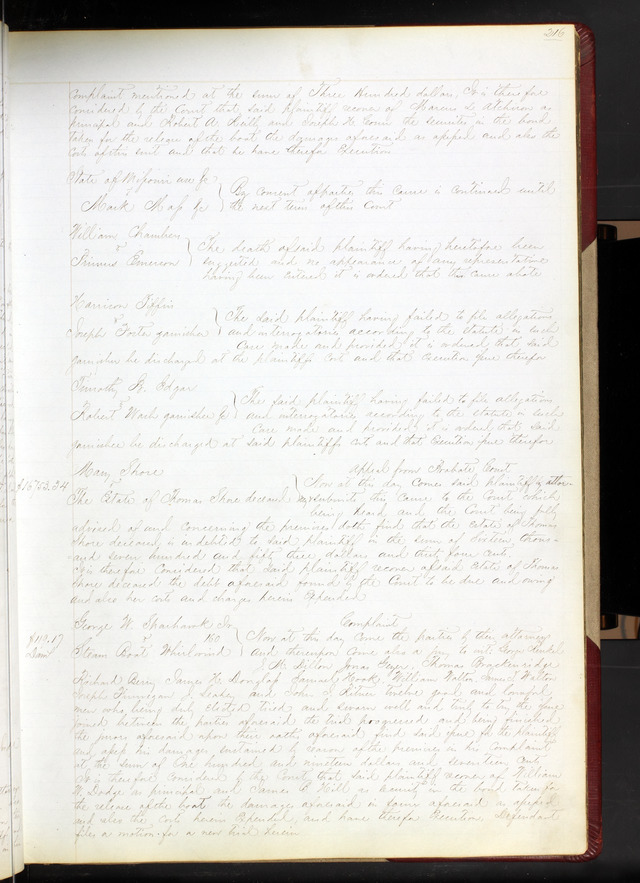 216
Complaint mentioned at the sum of Three Hundred dollars, It is therefore
Considered by the Court that said plaintiff recover of Marcus L Atchison as
principal and Robert A Keith and Joseph H the securities in the bond
taken for the release of the boat the damages aforesaid as assessed and also the
Costs of this suit and that he have therefor Execution
State of Missouri use &c
Mark
By consent of parties this cause is continued until
the next term of this Court
William Chambers
v
Primus Emerson
The death of said plaintiff having heretofore been
suggested and no appearance of any representative
having been entered it is ordered that this cause abate
Harrison Tiffin
v
Joseph Foster garnishee
The said plaintiff having failed to file allegations
and interrogatories according to the statute in such
Case made and provided, it is ordered that said
garnishee be discharged at the plaintiffs cost and that Execution issue therefor
Timothy B. Edgar
v
Robert Wash garnishee &c
The said plaintiff having failed to file allegations
and interrogatories according to the statute in such
Case made and provided it is ordered that said
garnishee be discharged at said plaintiffs cost and that Execution issue therefor
Mary Shore
v
The Estate of Thomas Shore deceased
appeal from Probate Court
$16753.34
Now at this day comes said plaintiff by attor-
ney submits this Cause to the Court which
being heard and the Court being fully
advised of and concerning the premises doth find that the estate of Thomas
Shore deceased is indebted to said plaintiff in the sum of Sixteen thous-
and seven hundred and fifty three dollars and thirty four cents
It is therefore Considered that said plaintiff recover of said Estate of Thomas
Shore deceased the debt aforesaid found by the Court to be due and owing
and also her costs and charges herein Expended
George W. Sparhawk Jr
v 160
Steam Boat Whirlwind
Complaint
$119.17
Now at this day come the parties by their attorneys
and thereupon comes also a jury to wit, George Kunkel
J. H. Dillon Jonas Geyer, Thomas Breckenridge
Richard Berry James H. Douglass Hook, William Walton James S Walton
Joseph Finnegan J. Leady and John S. Ritner twelve good and lawful
men who being duly elected tried and sworn well and truly to try the issue
joined between the parties aforesaid the trial progressed and being finished
the jurors aforesaid upon their oaths aforesaid find said issue for the plaintiff
and assess his damages sustained by reason of the premises in his Complaint
at the sum of One hundred and nineteen dollars and seventeen cents
It is therefore considered by the Court that said plaintiff recover of William
W. Dodge as principal and James S Hill as security in the bond taken for
the release of the boat the damages aforesaid in form aforesaid as assessed
and also the costs herein Expended, and have therefor Execution. Defendant
files a motion for a new trial herein